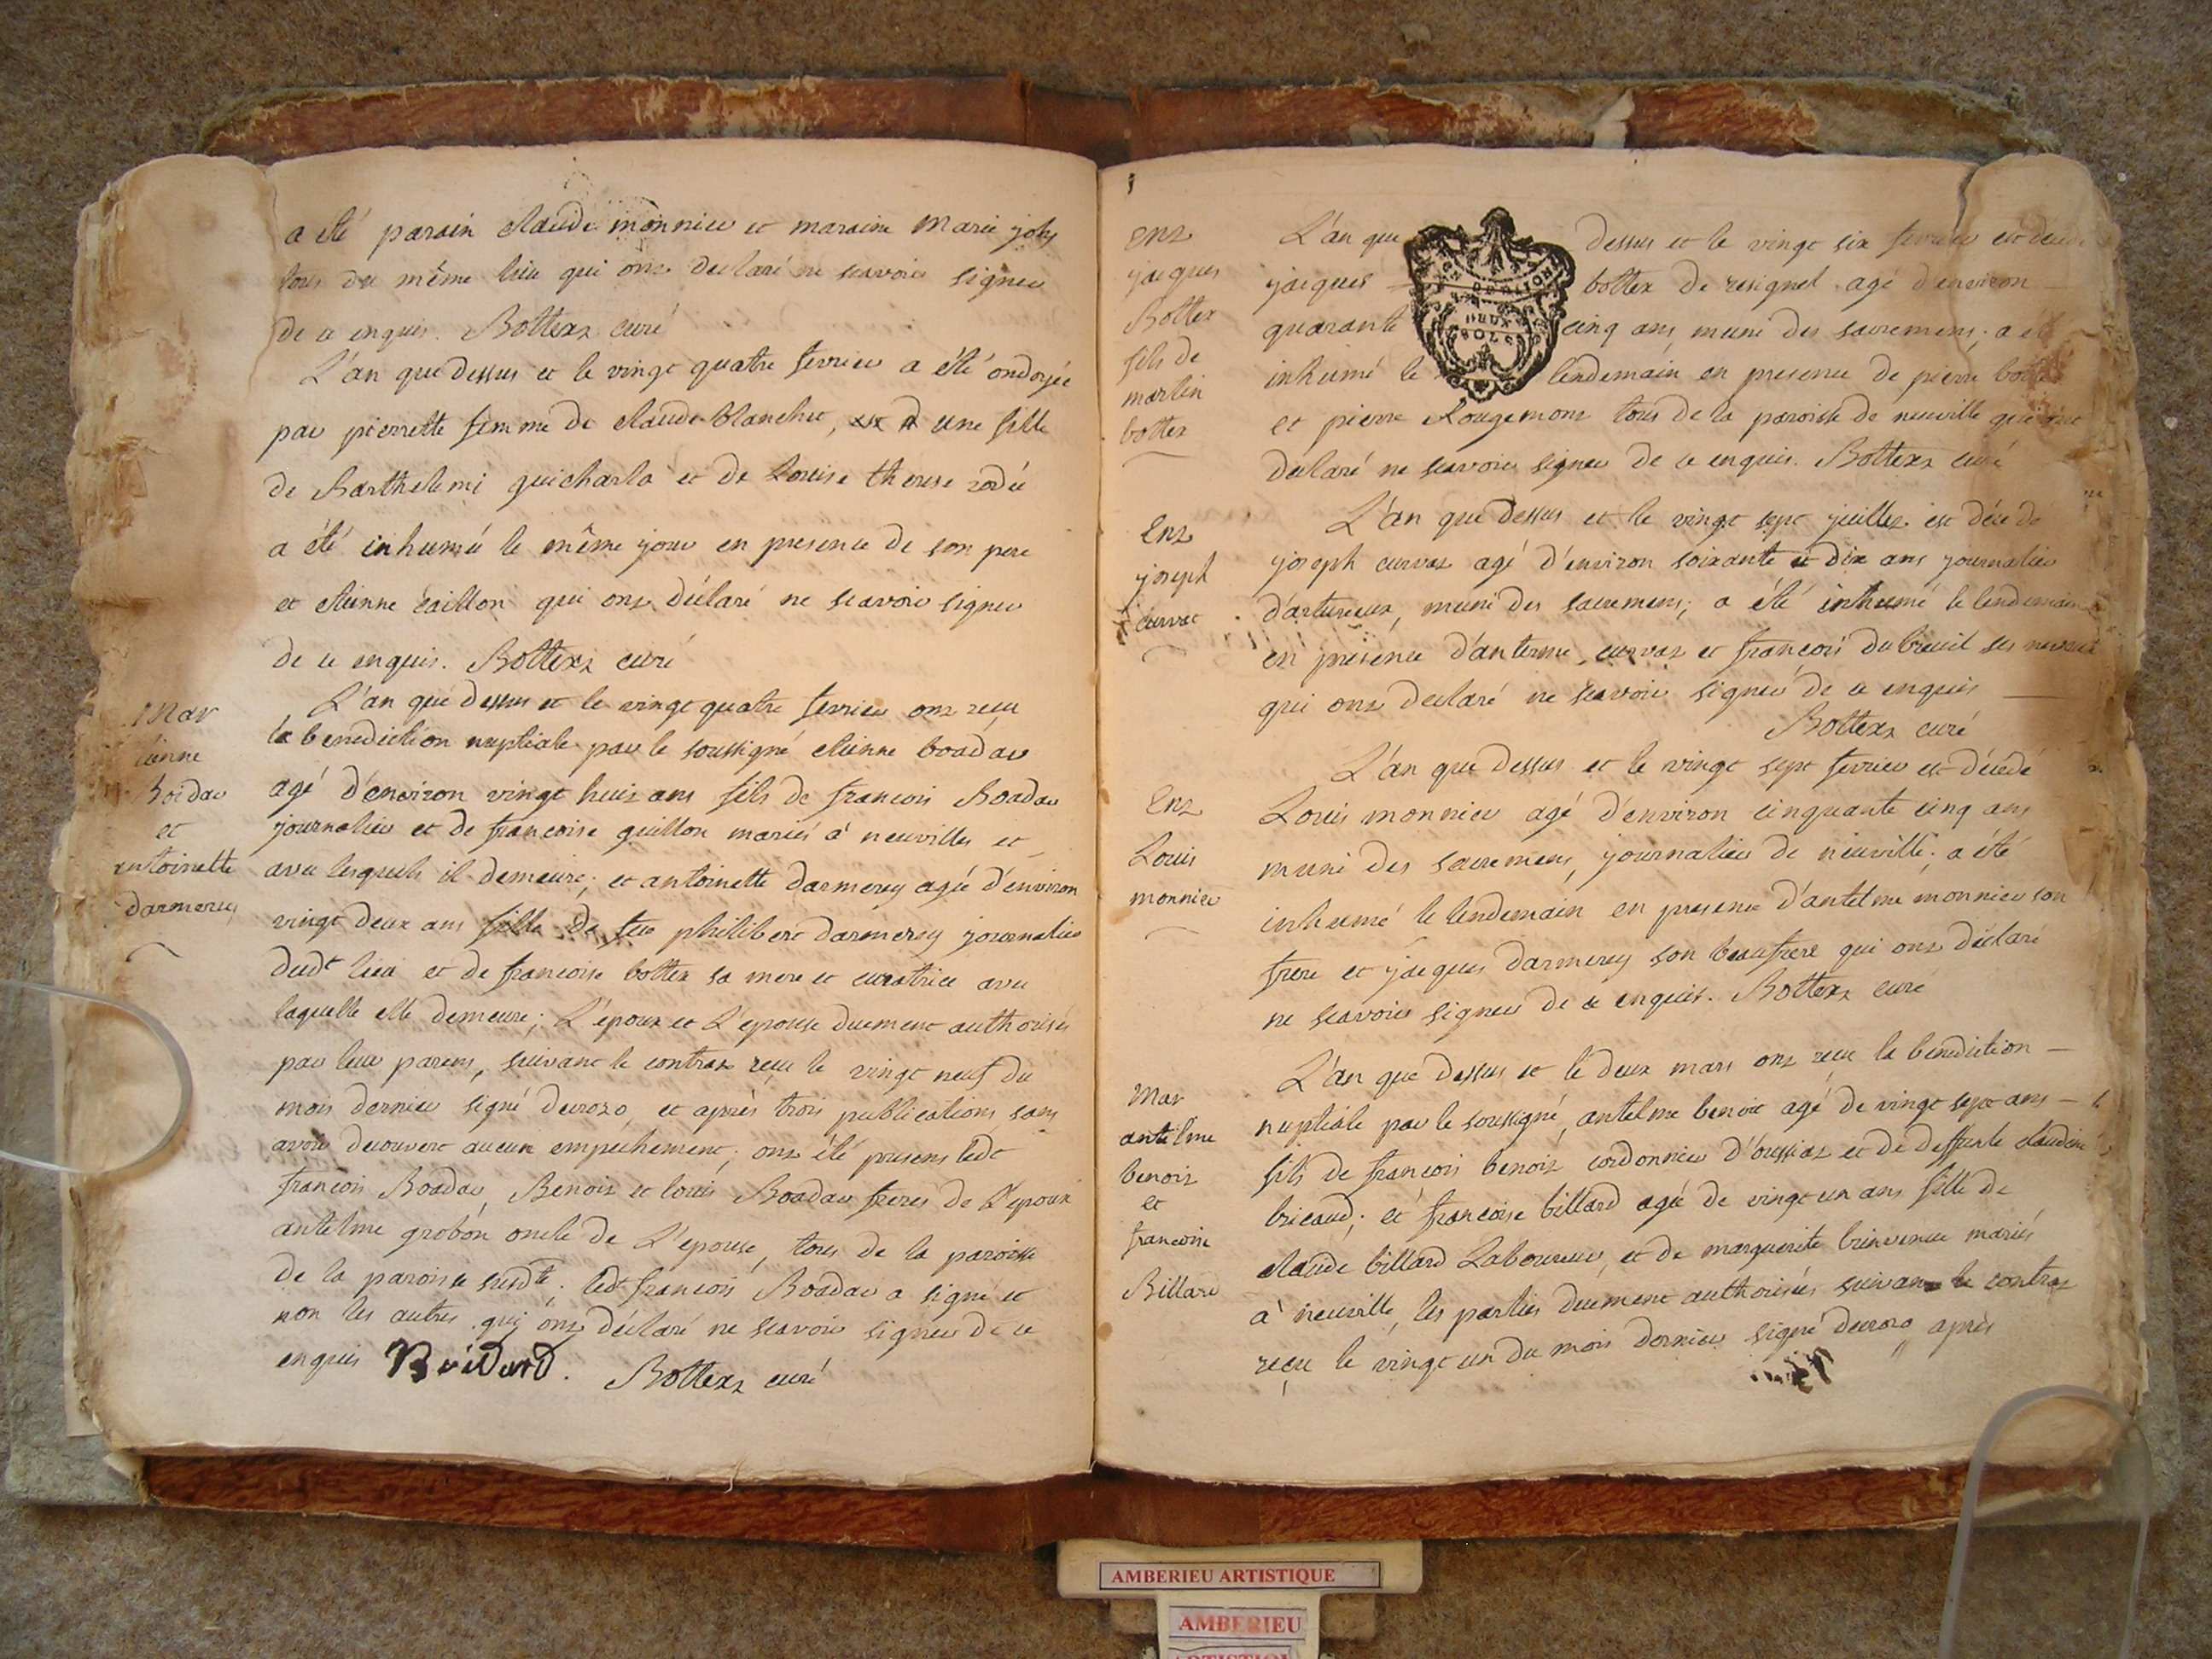 a été parain claude monnier et maraine Marie joly
tous du même lieu qui ont declaré ne scavoir signer
de ce enquis. Bottex curé
L'an que dessus et le vingt quatre fevrier a été ondoyée
par pierrette femme de claude blanchet, une fille
de Barthelemi guicharla et de Louise therese
a été inhumé le même jour en presence de son pere
et etienne caillon qui ont déclaré ne scavoir signer
de ce enquis. Bottex curé
Mar
tienne
Boidar
et
antoinette
darmerey
L'an que dessus et le vingt quatre fevrier ont reçu
la benediction nuptiale par le soussigné etienne boadar
agé d'environ vingt huit ans fils de francois Boadar
journalier et de francoise guillon mariés à neuvilles et
avec lesquels il demeure; et antoinette darmerey agée d'environ
vingt deux ans fille de feu philibert darmerey journalier
dudt lieu et de francoise bottex sa mere et curatrice avec
laquelle elle demeure; L'époux et L'epouse duement authorisés
par leur parens, suivant le contrat reçu le vingt neuf du
mois dernier signé decrozo, et après trois publications sans
avoir decouvert aucun empechement; ont été presens ledt
francois Boadar, Benoit et louis Boadar freres de L'epoux
antelme grobon oncle de L'epouse, tous de la paroisse
de la paroisse susdte; ledt francois Boadar a signé et
non les autres qui ont déclaré ne scavoir signer de ce
enquis Boidard. Bottex curé
ent
jacques
Bottex
fils de
martin
bottex
L'an que dessus et le vingt six fevrier est
jacques bottex de resignel agé d'environ
quarante cinq ans, muni des sacremens; a été
inhumé le lendemain en presence de pierre
et pierre Rougemont tous de la paroisse de neuville qui ont
declaré ne scavoir signer de ce enquis. Bottex curé
Ent
joseph
curvat
L'an que dessus et le vingt sept juillet est décedé
joseph curvat agé d'environ soixante et dix ans journalier
d'artureux, muni des sacremens; a été inhumé le lendemain
en presence d'antelme curvat et francois dubreuil ses neveux
qui ont declaré ne scavoir signer de ce enquis
Bottex curé
Ent
Louis
monnier
L'an que dessus et le vingt sept fevrier est décédé
Louis monnier agé d'environ cinquante cinq ans
muni des sacremens, journalier de neuville; a été
inhumé le lendemain en presence d'antelme monnier son
frere et jacques darmerey son beaufrere qui ont déclaré
ne scavoir signer de ce enquis. Bottex curé
Mar
antelme
benoit
et
francoise
Billard
L'an que dessus et le deux mars ont reçu la benediction
nuptiale par le soussigné, antelme benoit agé de vingt sept ans
fils de francois benoit cordonnier d'oussiat et de deffunte claudine
bricaud; et francoise billard agée de vingt un ans fille de
claude billard Laboureur, et de marguerite brinvenue mariés
à neuville, les parties duement authorisées suivant le contrat
reçu le vingt un du mois dernier signé decrozo après
AMBERIEU ARTISTIQUE
AMBERIEU
ARTISTIQUE